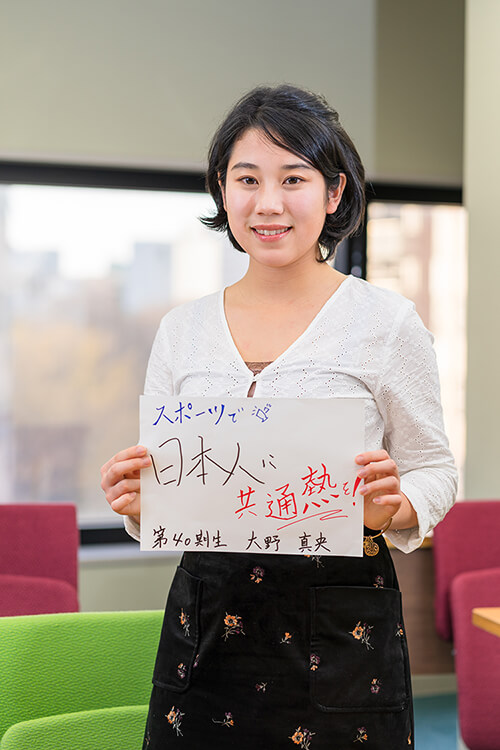 スポーツで
日本人に
共通熱を!
第40期生 大野 真央